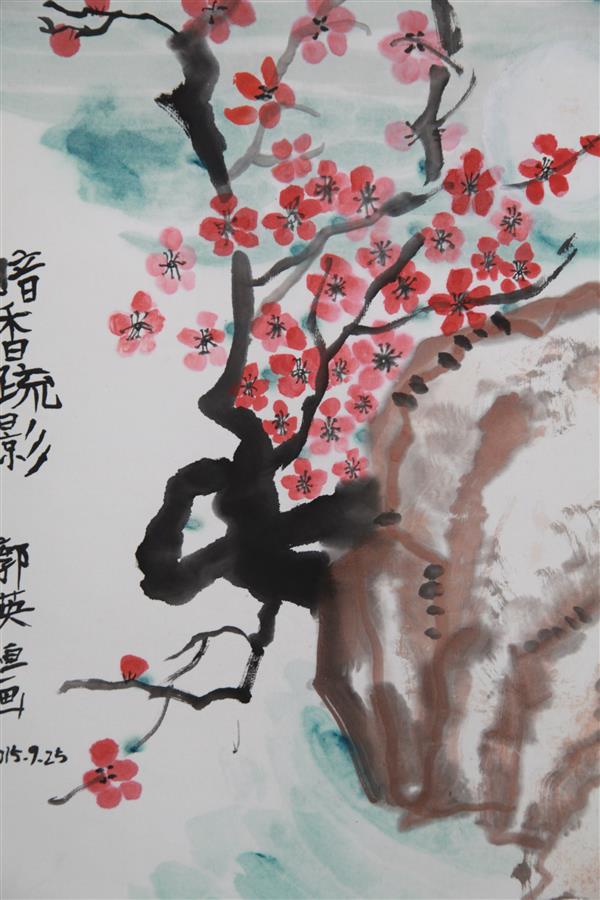 暗香疏影
郭英恒画
2015-9-25